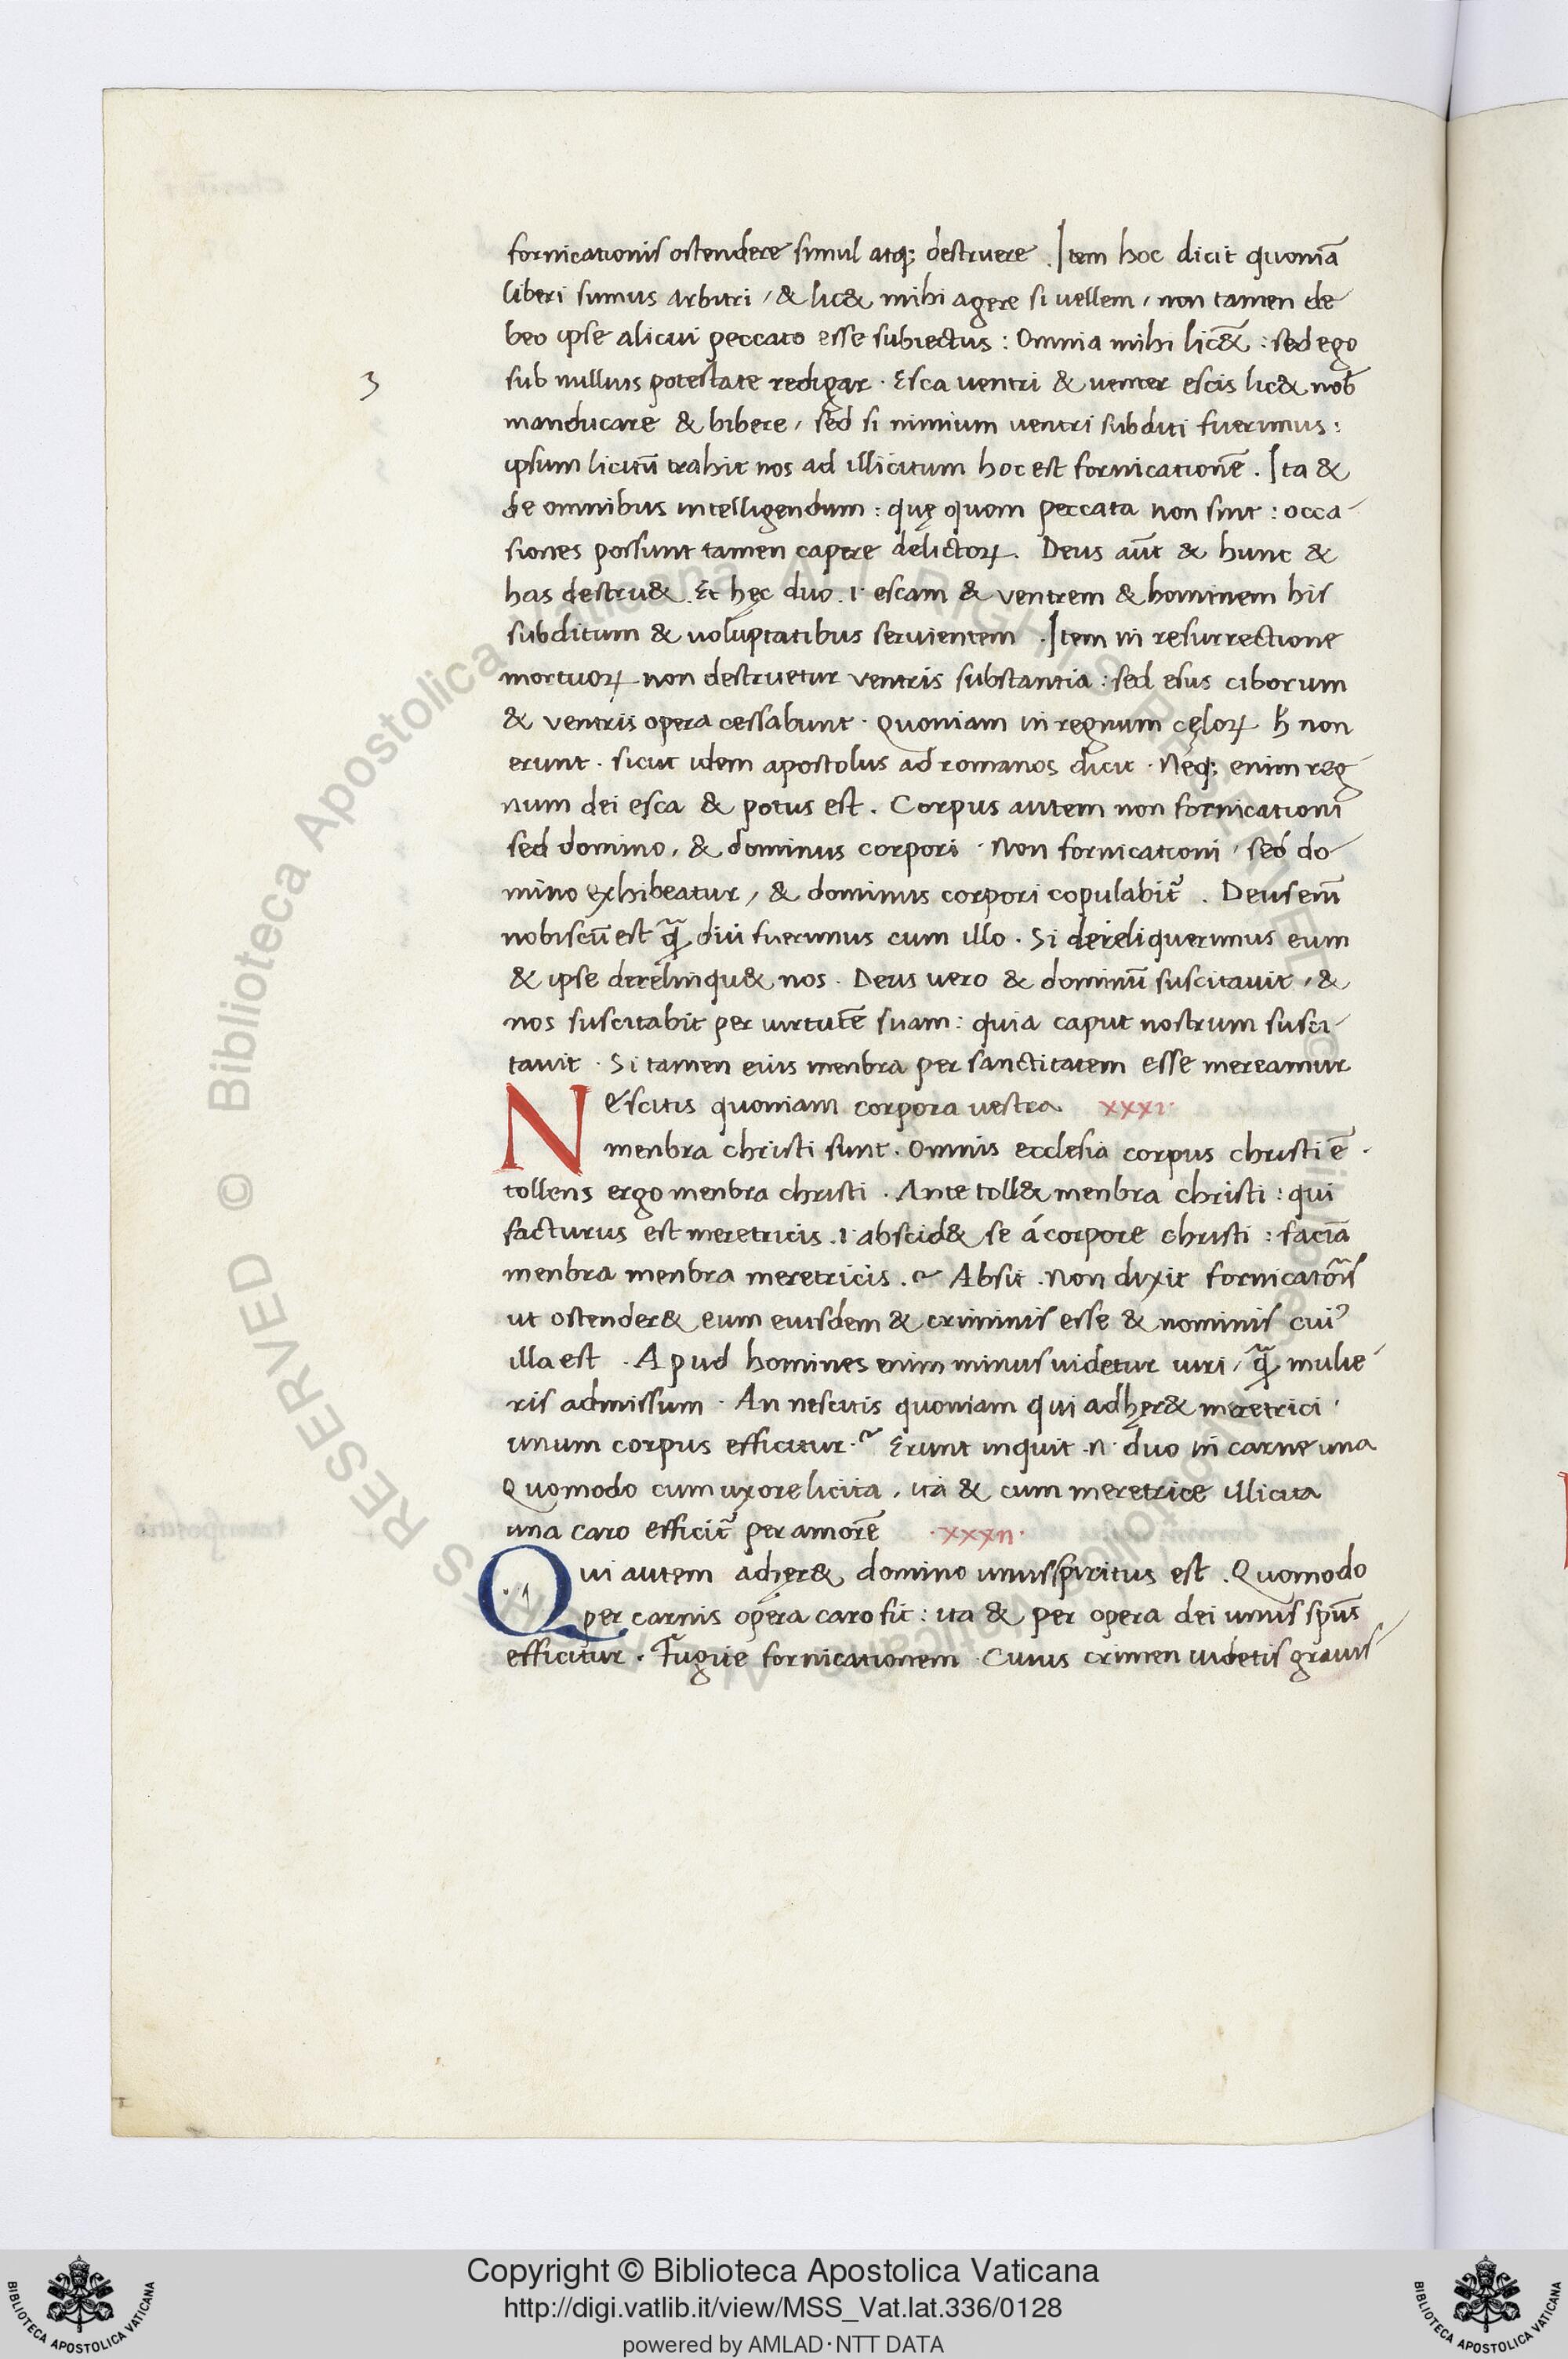 fornicationis ostendere simul atq; destruere . Item hoc dicit quoniã
liberi sumus arbitri / & lic& mihi agere si uellem / non tamen de
beo ipse alicui peccato esse subiectus : Omnia mihi lic& : sed ego
3
sub nullius potestate redigar · Esca uentri & uenter escis lic& nob̃
manducare & bibere / sed si nimium uentri subditi fuerimus :
ipsum licitũ trahit nos ad illicitum hoc est fornicationẽ . Ita &
de omnibus intelligendum : quę quom peccata non sint : occa
siones possunt tamen capere delictoꝝ . Deus aũt & hunc &
has destru& . Et hęc duo .i. escam & ventrem & hominem his
subditum & uoluptatibus seruientem . Item in resurrectione
mortuoꝝ non destruetur ventris substantia : sed esus ciborum
& ventris opera cessabunt · Quoniam in regnum cęloꝝ h̃ non
erunt · sicut idem apostolus ad romanos dicit · Neq; enim reg
num dei esca & potus est . Corpus autem non fornicationi
sed domino / & dominus corpori · Non fornicationi / sed do
mino exhibeatur / & dominus corpori copulabit᷑ . Deus eni᷑
nobiscũ est q̃ȝ diu fuerimus cum illo . Si dereliquerimus eum
& ipse derelinqu& nos . Deus vero & dominũ suscitauit / &
nos suscitabit per uirtutẽ suam : quia caput nostrum susci
tauit · Si tamen eius menbra per sanctitatem esse mereamur
Nescitis quoniam corpora vestra xxxi·
menbra christi sunt . Omnis ecclesia corpus christi ẽ .
tollens ergo menbra christi . Ante toll& menbra christi : qui
facturus est meretricis .i. abscid& se á corpore christi : faciã
menbra menbra meretricis .~ Absit . Non dixit fornicatõis
ut ostender& eum eiusdem & criminis esse & nominis cui᷒
illa est . Apud homines enim minus uidetur uiri / q̃ȝ mulie
ris admissum · An nescitis quoniam qui adhęr& meretrici ·
unum corpus efficitur .~ Erunt inquit .n. duo in carne una
Quomodo cum uxore licita / ita & cum meretrice illicita
una caro efficit᷑ per amorẽ ·xxxii·
Qui autem adhęr& domino unus spiritus est . Quomodo
per carnis opera caro fit : ita & per opera dei unus sp̃us
efficitur . Fugite fornicationem · Cuius crimen uidetis grauis
Copyright © Biblioteca Apostolica Vaticana
http://digi.vatlib.it/view/MSS_Vat.lat.336/0128
powered by AMLAD·NTT DATA